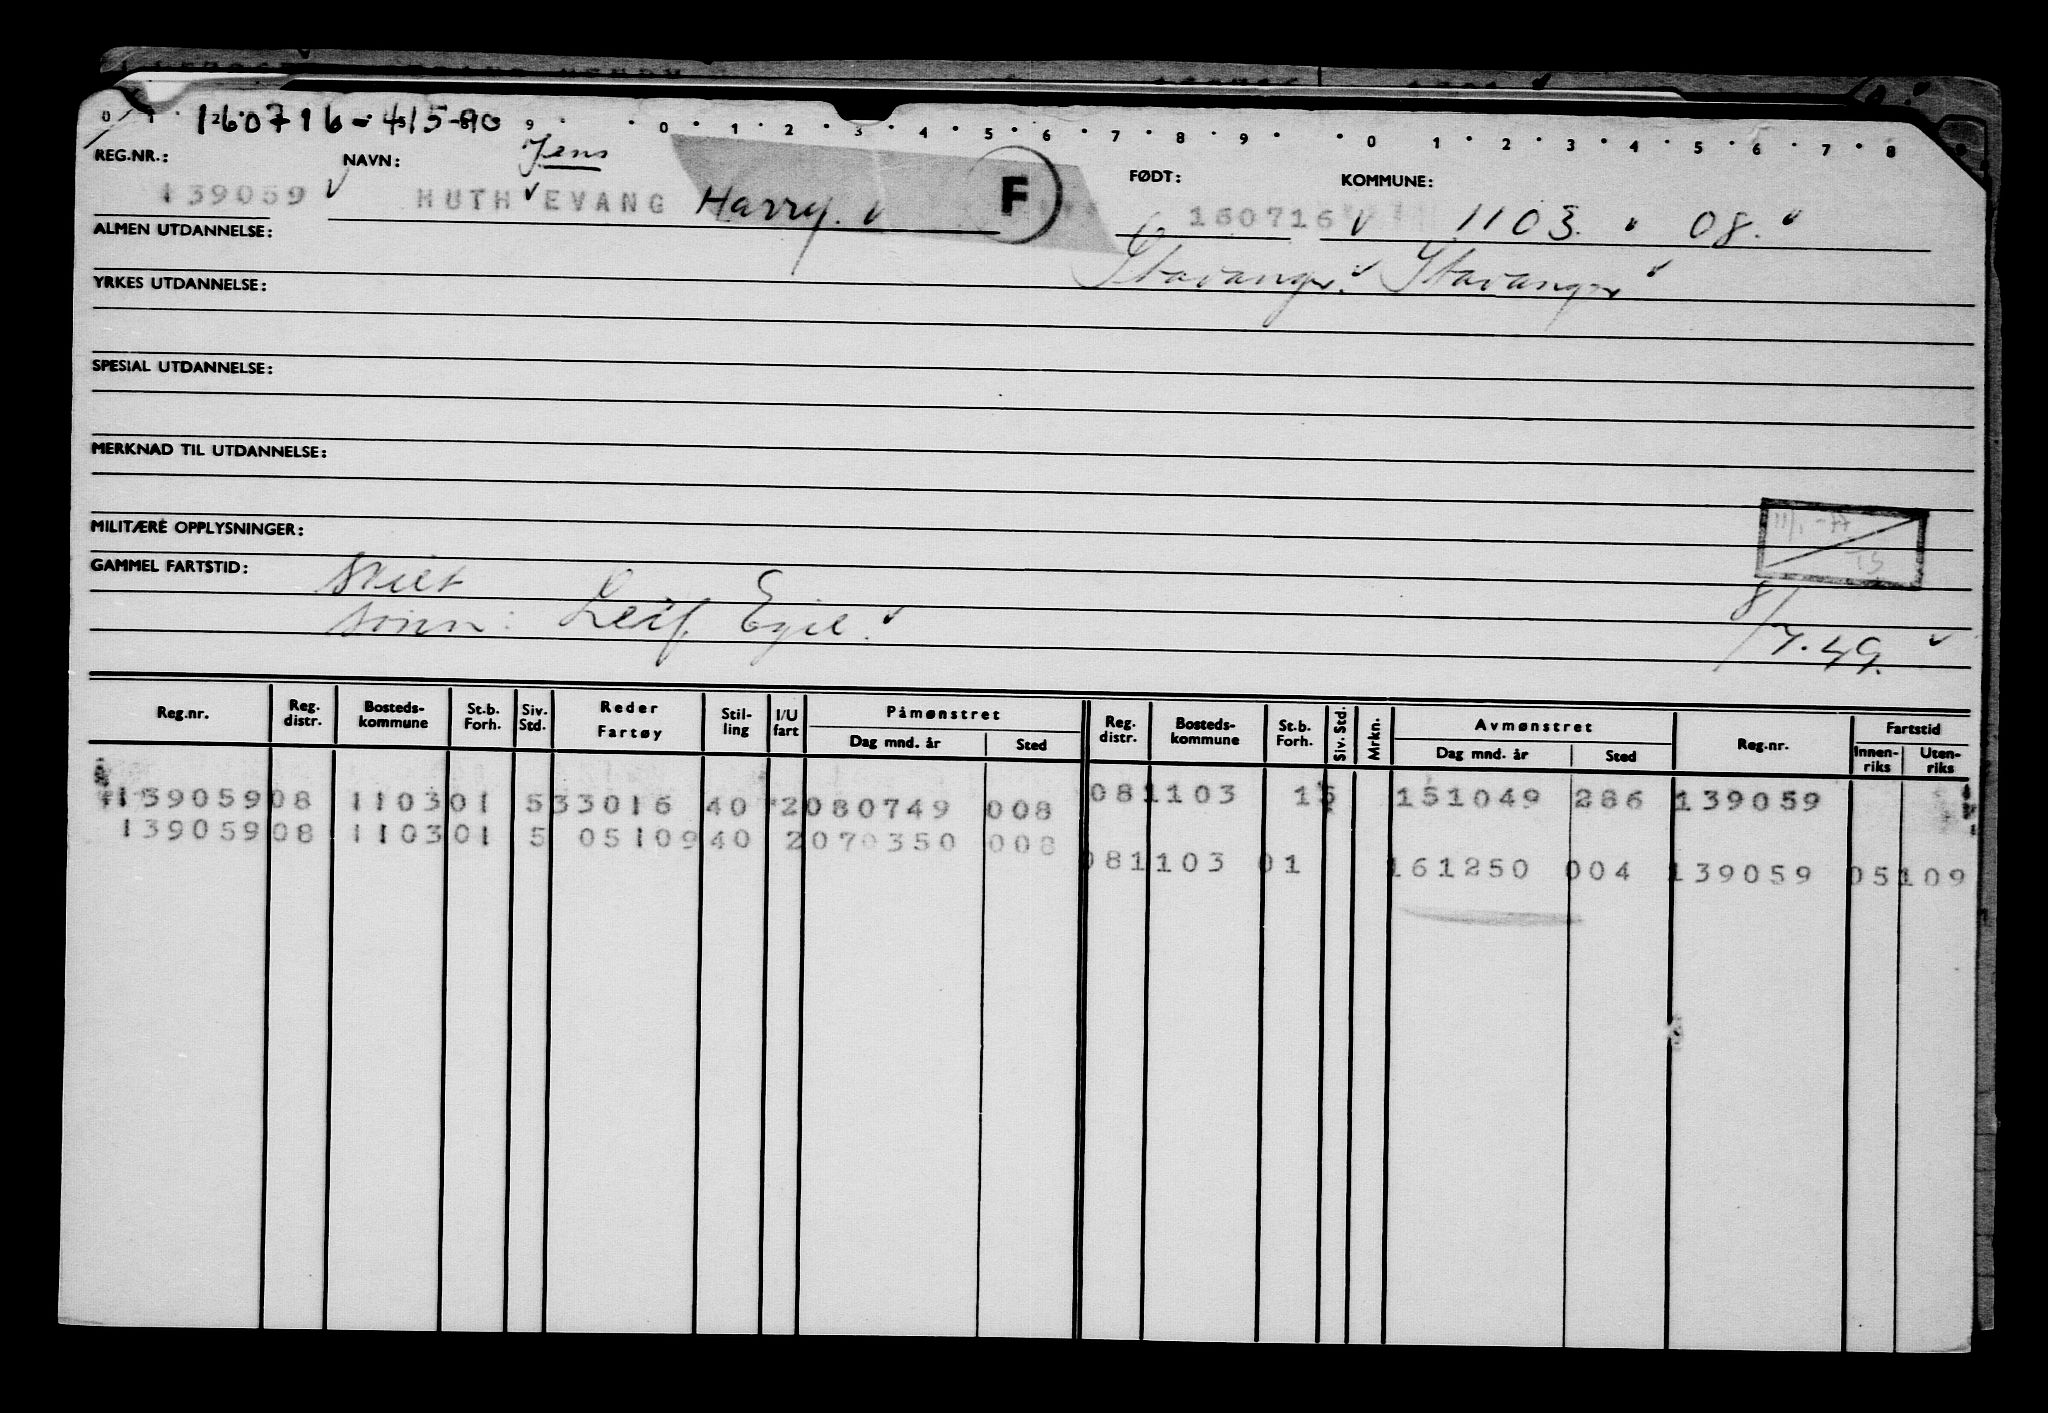 160716-41590
0 1 2 9 0 1 2 3 4 5 6 7 8 9 0 1 2 3 4 5 6 7 8
REG.NR.: NAVN: Jens FØDT: KOMMUNE:
139059 HUTH EVANG Harry. F 160716 1103. 08.
ALMEN UTDANNELSE:
Stavanger. Stavanger
YRKES UTDANNELSE:
SPESIAL UTDANNELSE:
MERKNAD TIL UTDANNELSE:
11/1-77
MILITÆRE OPPLYSNINGER:
TS
GAMMEL FARTSTID: skilt
sønn: Leif. Egil. 8/7.49.
Reg.nr. Reg. distr. Bosteds-kommune St.b. Forh. Siv. Std. Reder Fartøy Stil-ling I/U fart Påmønstret Dag mnd. år Sted Reg. distr. Bosteds-kommune St.b. Forh. Siv. Std. Mrkn. Avmønstret Dag mnd. år Sted Reg.nr. Fartstid Innen-riks Uten-riks
139059 08 1103 01 5 33016 40 2 080749 008 08 1103 15 151049 286 139059
139059 08 1103 01 5 05109 40 2 070350 008
08 1103 01 161250 004 139059 05109